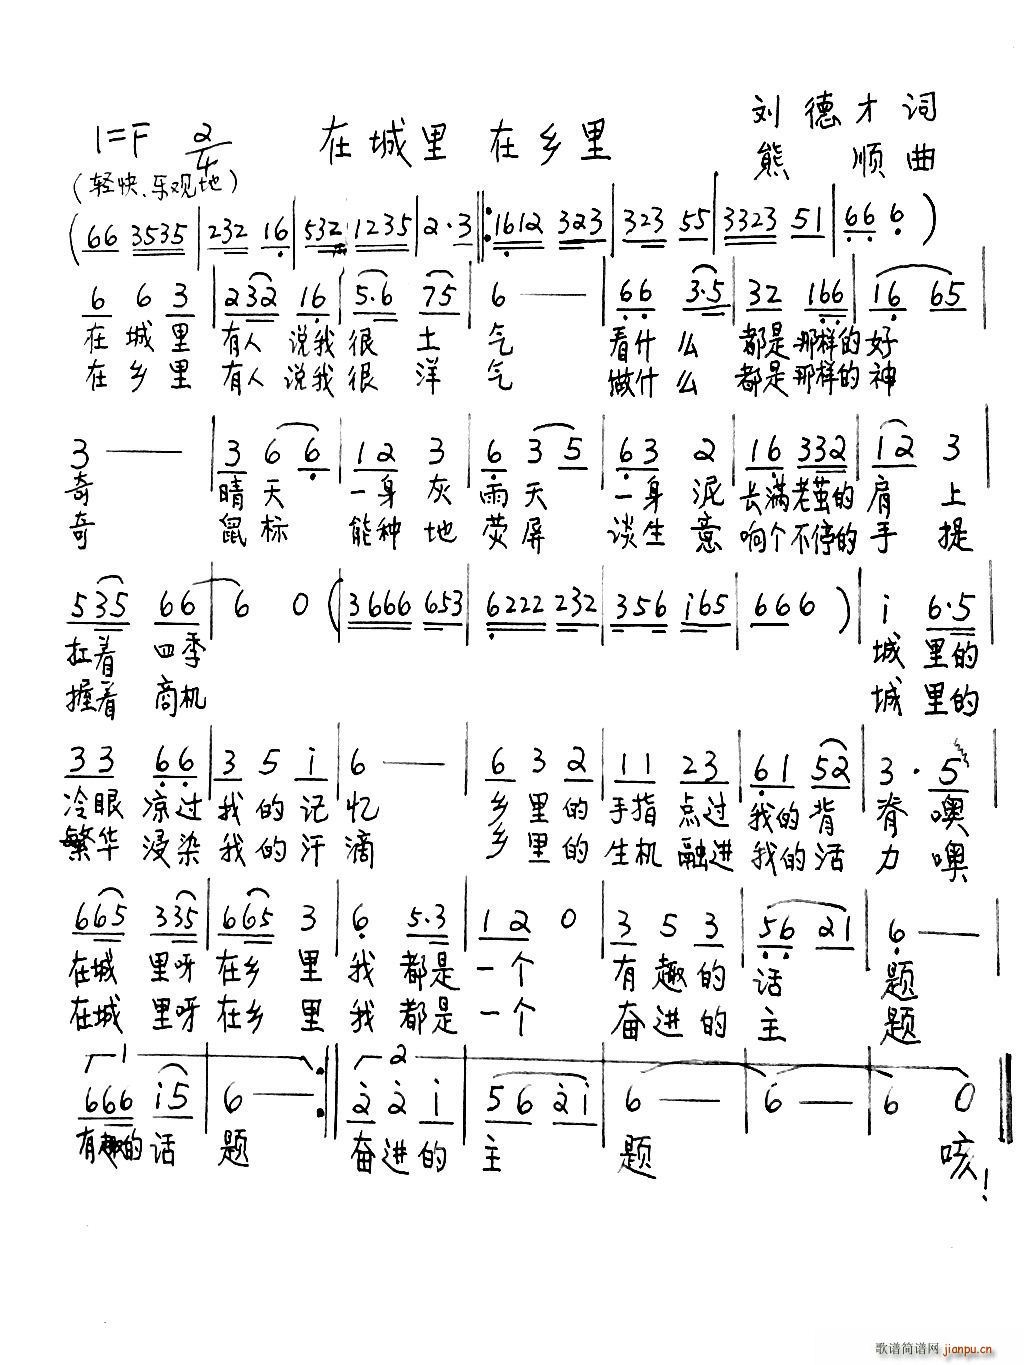 1=F 2/4 在城里 在乡里 刘德才词
熊 顺曲
(轻快、乐观地)
(66 3535|232 16|532 1235|2·3|:1612 323|323 55|3323 51|66 6)
6 6 3|232 16|5·6 75|6 —|66 3·5|32 166|16 65|
在城里 有人说我很土气 看什么 都是那样的好
在乡里 有人说我很洋气 做什么 都是那样的神
3 —|3 6 6|1 2 3|6 3 5|63 2|16 332|12 3|
奇 晴天 一身灰 雨天 一身泥 长满老茧的肩上
奇 鼠标 能种地 荧屏 谈生意 响个不停的手提
535 66|6 0(|3666 653|6222 232|356 i65|666)|i 6·5|
扛着四季 城里的
握着商机 城里的
33 66|3 5 i|6 —|6 3 2|11 23|61 52|3·5|
冷眼凉过我的记忆 乡里的手指点过我的背脊噢
繁华浸染我的汗滴 乡里的生机融进我的活力噢
665 335|665 3|6 5·3|12 0|3 5 3|56 21|6 —
在城里呀在乡里我都是一个 有趣的话题
在城里呀在乡里我都是一个 奋进的主题
1 2
666 i5|6 — :|2 2 i|56 2i|6 —|6 —|6 0‖
有趣的话题 奋进的主题 咳!
歌谱简谱网 jianpu.cn